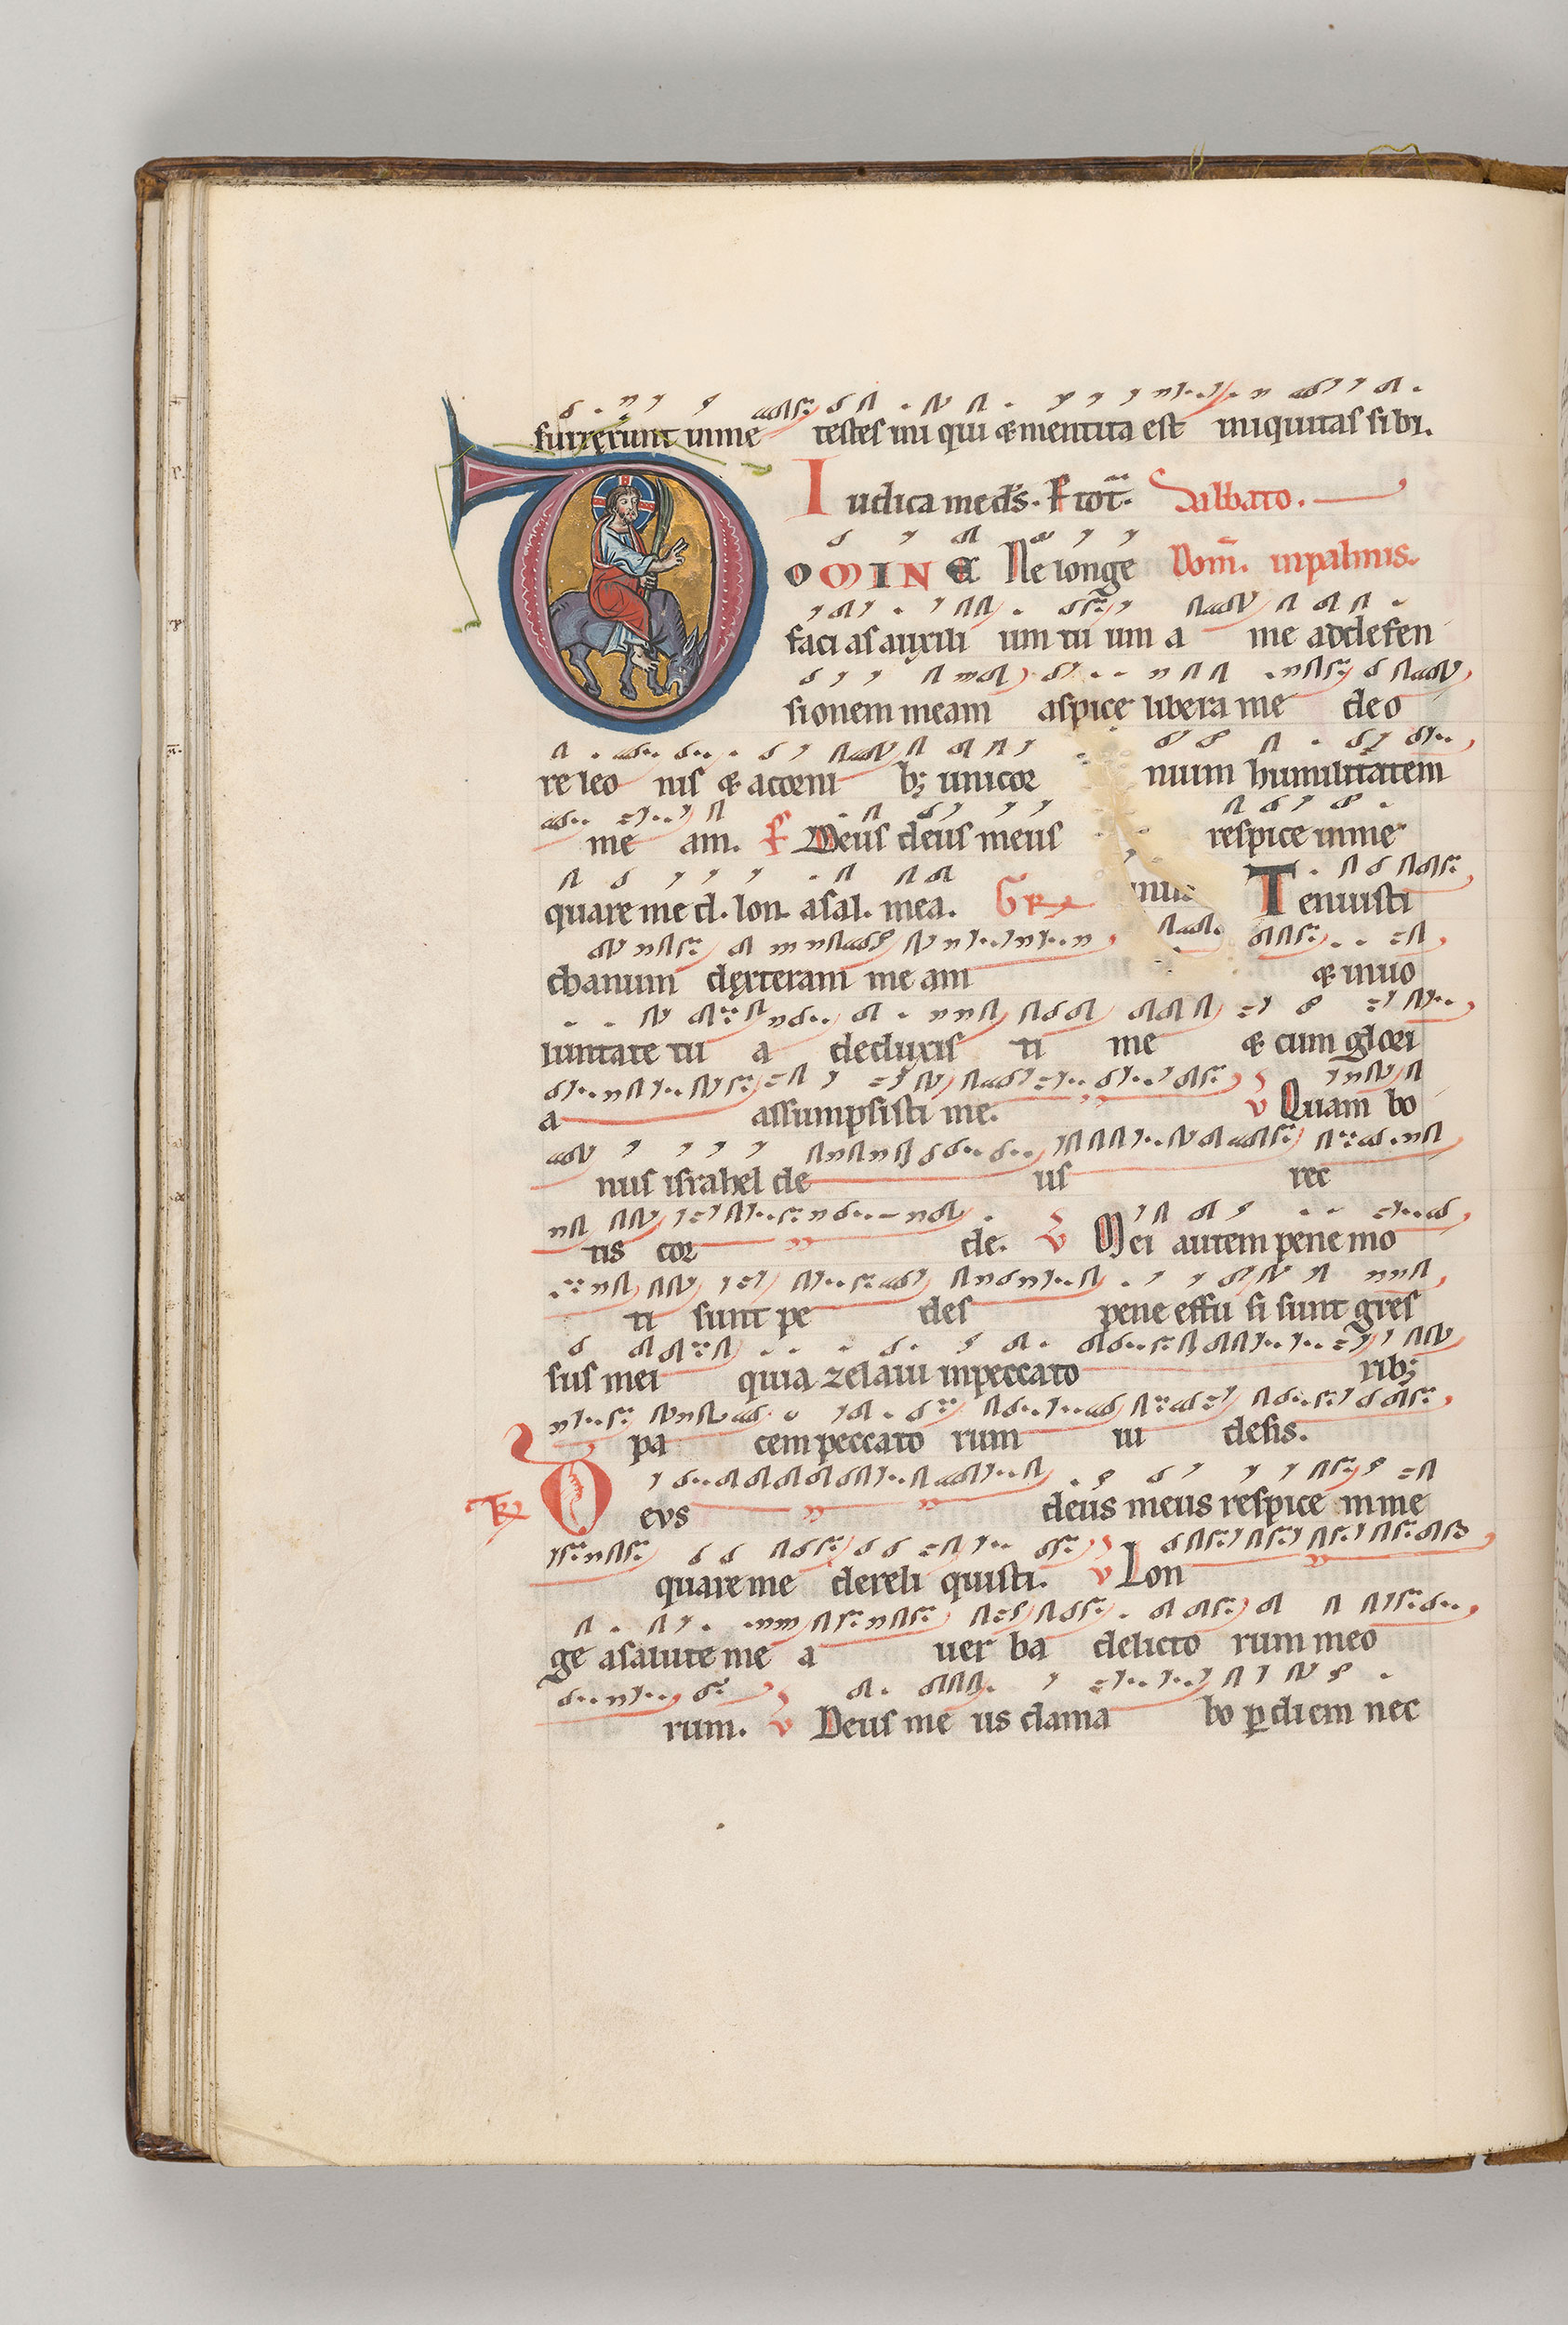 surrexerunt inme testes ini qui & mentita est iniquitas sibi.
Iudica me ds. Sabbato.
DOMINE Ne longe Dom. inpalmis.
faci as auxili um tu um a me addefen
sionem meam aspice libera me deo
re leo nis & acorni b; unicor nium humilitatem
me am. Deus deus meus respice inme
quare me d. lon. asal. mea. GR Tenuisti
manum dexteram me am & inuo
luntate tu a deduxis ti me & cum glori
a assumpsisti me. V Quam bo
nus israhel de us rec
tis cor de. V Mei autem pene mo
ti sunt pe des pene effu si sunt gres
sus mei quia zelaui inpeccato rib;
pa cem peccato rum ui detis.
TR DEVS deus meus respice inme
quare me dereli quisti. V Lon
ge asalute me a uer ba delicto rum meo
rum. V Deus me us clama bo p diem nec